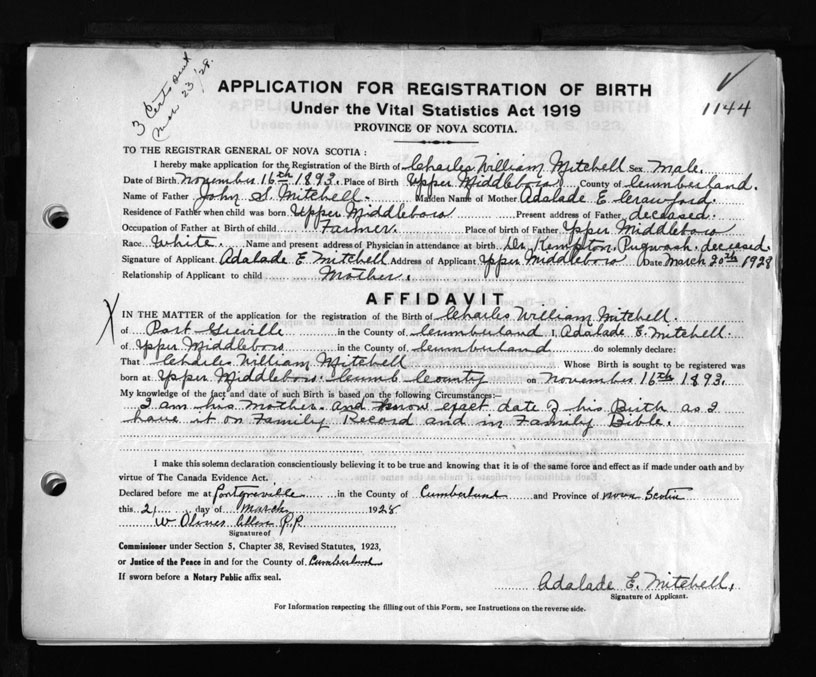 3 Certs sent
Mar 23/28.
1144
APPLICATION FOR REGISTRATION OF BIRTH
Under the Vital Statistics Act 1919
PROVINCE OF NOVA SCOTIA.
TO THE REGISTRAR GENERAL OF NOVA SCOTIA:
I hereby make application for the Registration of the Birth of Charles William Mitchell Sex Male.
Date of Birth November 16th 1893. Place of Birth Upper Middleboro County of Cumberland.
Name of Father John S. Mitchell. Maiden Name of Mother Adalade E. Crawford.
Residence of Father when child was born Upper Middleboro Present address of Father deceased.
Occupation of Father at Birth of child Farmer. Place of birth of Father Upper Middleboro
Race White. Name and present address of Physician in attendance at birth Dr Kempton Pugwash. deceased.
Signature of Applicant Adalade E Mitchell Address of Applicant Upper Middleboro Date March 20th 1928
Relationship of Applicant to child Mother.
AFFIDAVIT
IN THE MATTER of the application for the registration of the Birth of Charles William Mitchell.
of Port Greville in the County of Cumberland I, Adalade E. Mitchell.
of Upper Middleboro in the County of Cumberland do solemnly declare:
That Charles William Mitchell Whose Birth is sought to be registered was
born at Upper Middleboro. Cumb County on November 16th 1893.
My knowledge of the fact and date of such Birth is based on the following Circumstances:—
I am his Mother. and know exact date of his Birth as I
have it on Family Record and in Family Bible.
I make this solemn declaration conscientiously believing it to be true and knowing that it is of the same force and effect as if made under oath and by
virtue of The Canada Evidence Act.
Declared before me at Portgreville in the County of Cumberland and Province of Nova Scotia
this 21 day of March 1928
W
Signature of
Commissioner under Section 5, Chapter 38, Revised Statutes, 1923,
or Justice of the Peace in and for the County of Cumberland
If sworn before a Notary Public affix seal.
Adalade E. Mitchell.
Signature of Applicant.
For Information respecting the filling out of this Form, see Instructions on the reverse side.